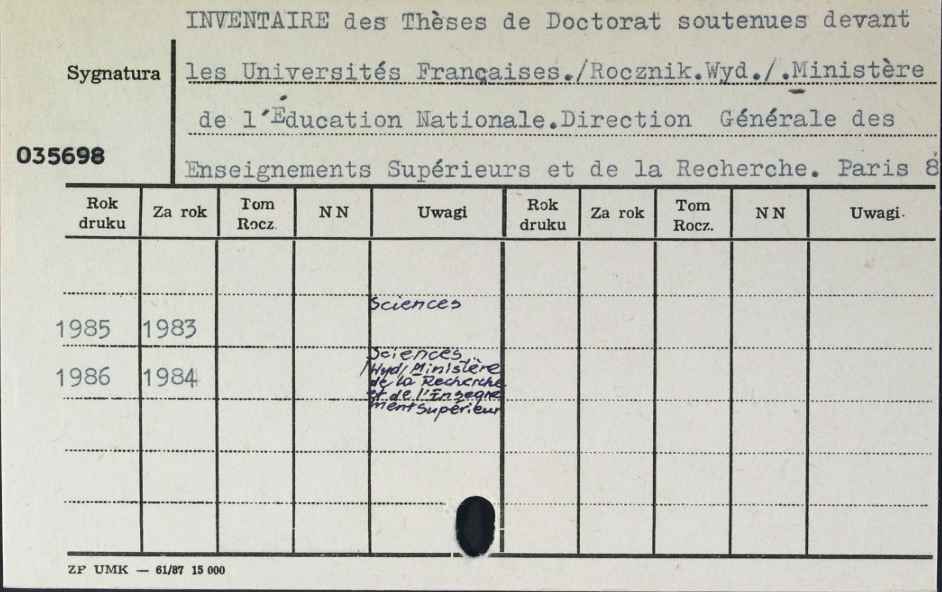 INVENTAIRE des Thèses de Doctorat soutenues devant
Sygnatura
les Universités Françaises./Rocznik.Wyd./.Ministère
de l'Éducation Nationale.Direction Générale des
035698
Enseignements Supérieurs et de la Recherche. Paris 8
Rok druku Za rok Tom Rocz. NN Uwagi Rok druku Za rok Tom Rocz. NN Uwagi.
Sciences
1985 1983
Sciences
/Wyd/Ministère
1986 1984
de la Recherche
et de l'Enseigne
ment Supérieur
ZP UMK — 61/87 15 000